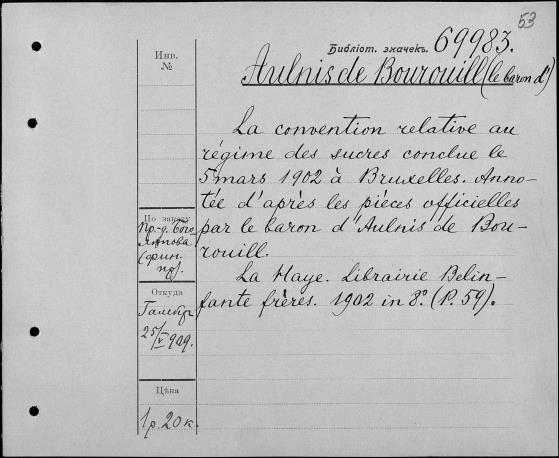 53
Библіот. значекъ. 69983.
Инв.
№
Aulnis de Bourouill (le baron d')
La convention relative au
régime des sucres conclue le
5 mars 1902 à Bruxelles. Anno-
tée d'après les pièces officielles
par le baron d'Aulnis de Bou-
rouill.
La Haye. Librairie Belin-
fante frères. 1902 in 8º. (P. 59).
По заказу
Пр.-д. Бого-
лѣпова
(фин.
пр).
Откуда
25/V 909.
Цѣна
1р. 20к.